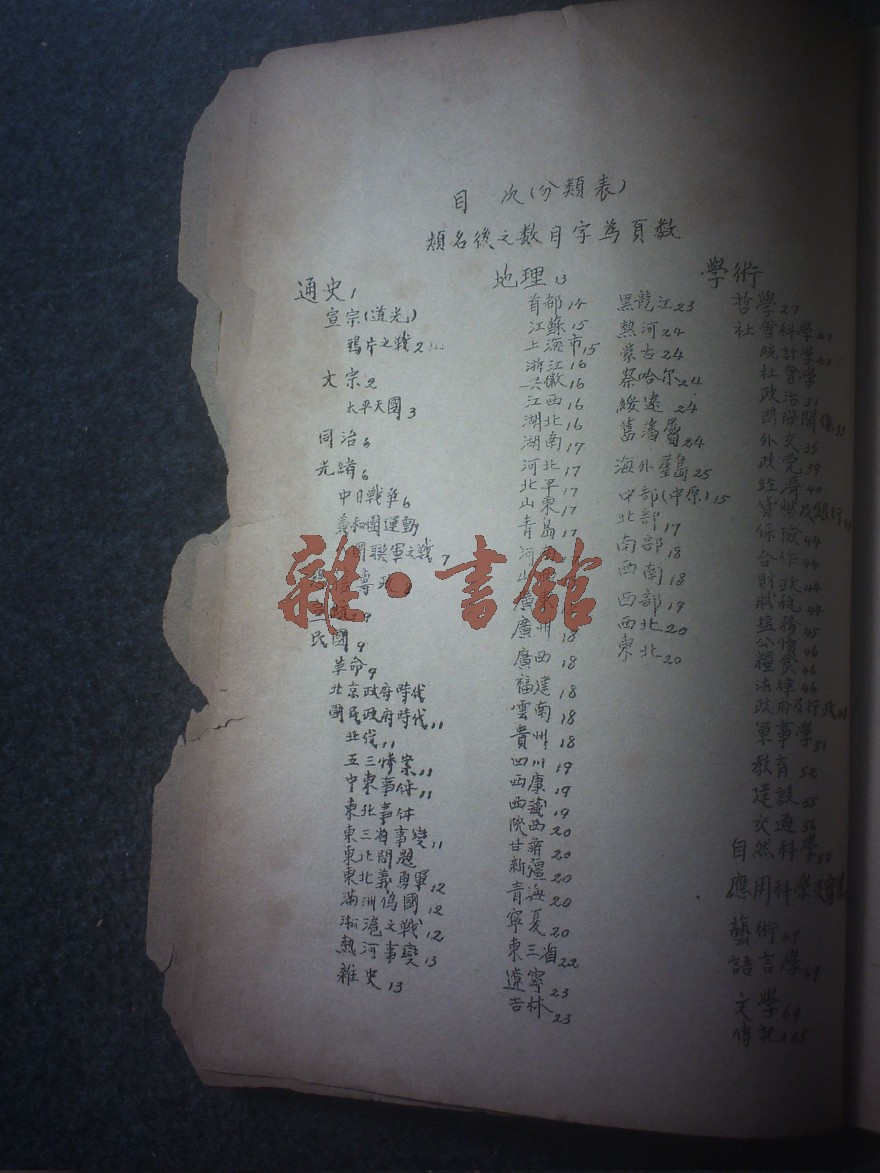 目 次(分類表)
類名後之数目字為頁数
通史1
宣宗(道光)
鴉片之戰2
文宗2
太平天國3
同治6
光緒6
中日戰爭6
義和團運動
國联軍之戰7
專政
9
民國9
革命9
北京政府時代
國民政府時代11
北伐11
五三惨案11
中東事件11
東北事件
東三省事變11
東北問題
東北義勇軍12
滿洲偽國12
淞滬之戰12
熱河事變13
雜史13
地理13
首都14
江蘇15
上海市15
浙江16
安徽16
江西16
湖北16
湖南17
河北17
北平17
山東17
青島17
河南
廣
廣州18
廣西18
福建18
雲南18
貴州18
四川19
西康19
西藏19
陝西20
甘肅20
新疆20
青海20
寧夏20
東三省22
遼寧23
吉林23
黑龍江23
熱河24
蒙古24
察哈尔24
綏遠24
舊藩屬24
海外羣島25
中部(中原)15
北部17
南部18
西南18
西部19
西北20
東北20
學術
哲學27
社會科學27
統計學27
社會學
政治31
國際關係33
外交35
政党39
經濟40
貨幣及銀行
保險44
合作44
財政44
賦稅44
塩務45
公債46
糧食46
法律46
政府及行政
軍事學51
教育52
建設55
交通56
自然科學57
應用科學及
藝術69
語言學69
文學69
傳記125
雜·書館